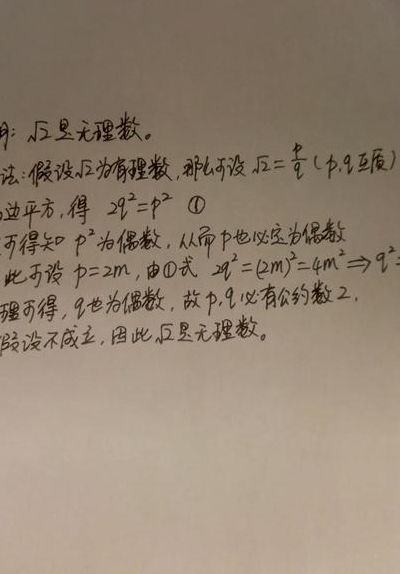 明: √2是无理数。
法:假设√2为有理数,那么可设 √2=p/q (p,q互质)
边平方,得 2q²=p² ①
可得知 p²为偶数,从而p也必定为偶数
此可设 p=2m,由①式 2q²=(2m)²=4m²⇒q²=
理可得,q也为偶数,故p,q必有公约数2,
假设不成立,因此√2是无理数。